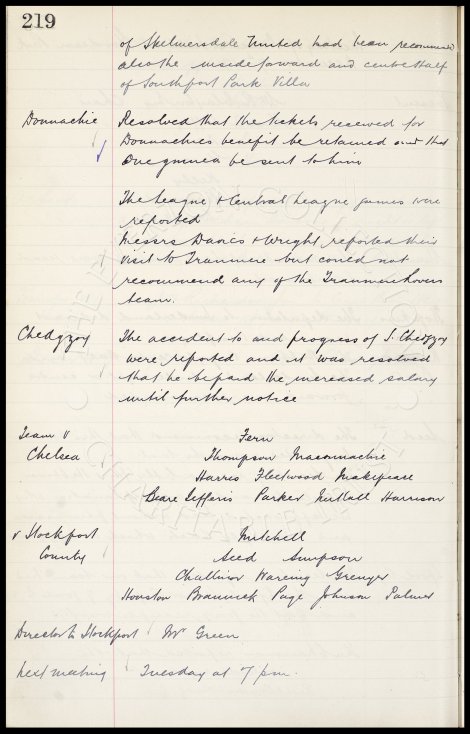 219
of Skelmersdale United had been recommended
also the inside forward and centre half
of Southport Park Villa
Donnachie Resolved that the tickets reserved for
Donnachies benefit be retained and that
One guinea be sent to him
The League & Central League games were
reported
Messrs Davies & Wright reported their
visit to Tranmere but could not
recommend any of the Tranmere Rovers
team.
Chedgzoy The accident to and progress of S. Chedgzoy
were reported and it was resolved
that he be paid the increased salary
until further notice
Team v Fern
Chelsea Thompson Maconnachie
Harris Fleetwood Makepeace
Beare Jefferis Parker Nuttall Harrison
v Stockport Mitchell
County Seed Simpson
Challinor Wareing Grenyer
Houston Brannick Page Johnson Palmer
Director to Stockport Mr Green
Next meeting Tuesday at 7 pm.